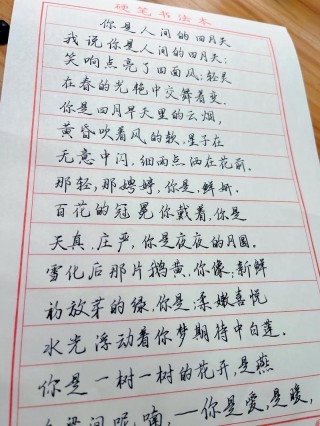 硬笔书法本
你是人间的四月天
我说你是人间的四月天;
笑响点亮了四面风;轻灵
在春的光艳中交舞着变.
你是四月早天里的云烟,
黄昏吹着风的软,星子在
无意中闪,细雨点洒在花前.
那轻,那娉婷,你是,鲜妍.
百花的冠冕你戴着,你是
天真,庄严,你是夜夜的月圆.
雪化后那片鹅黄,你像;新鲜
初放芽的绿,你是;柔嫩喜悦
水光浮动着你梦期待中白莲.
你是一树一树的花开,是燕
呢,喃,—你是爱,是暖,